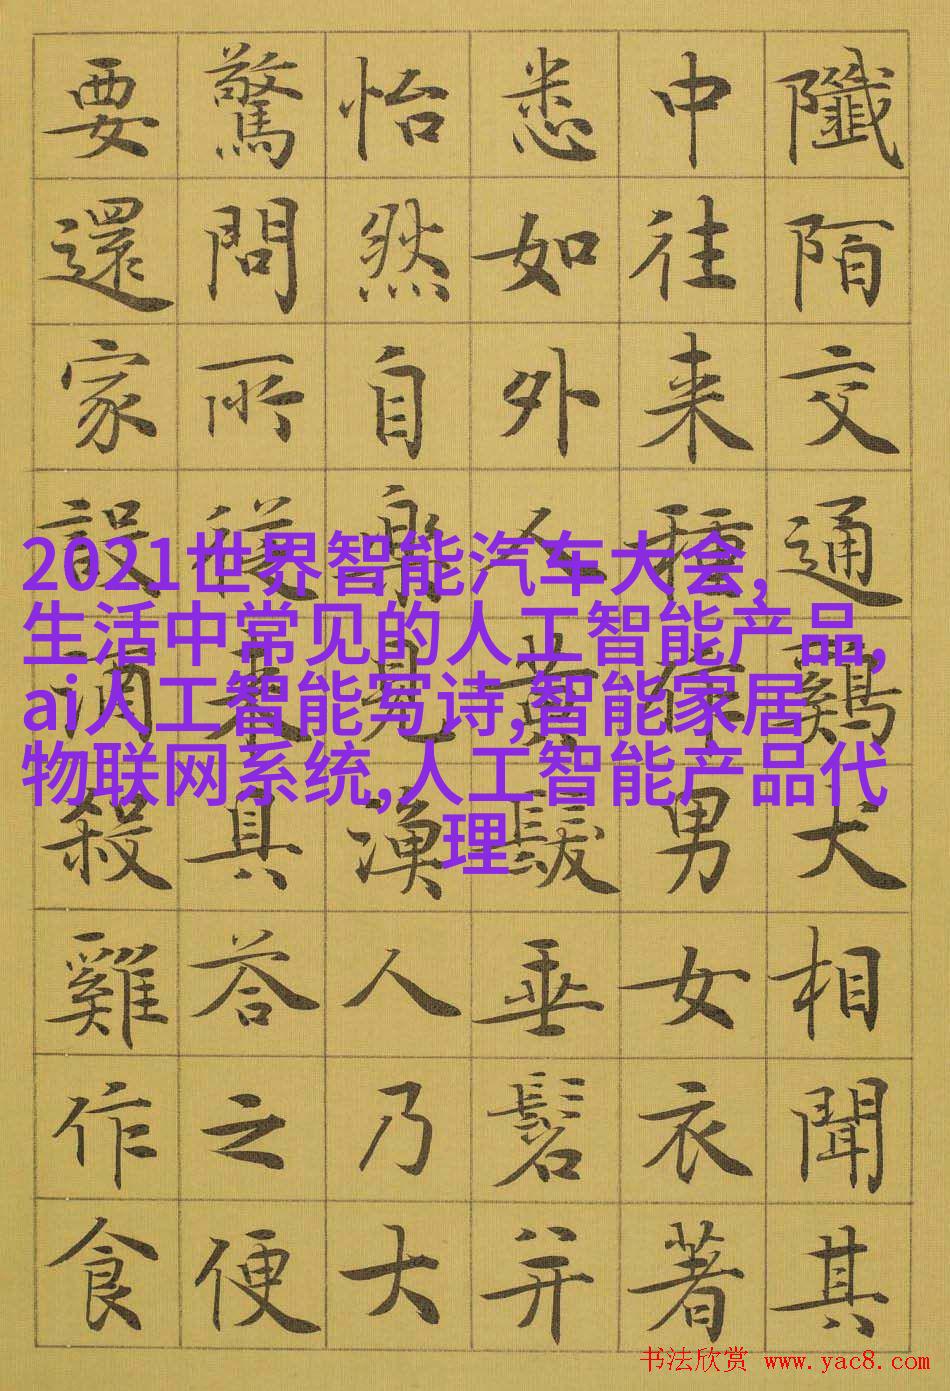 陌交通鷄犬相聞其
中往来種作男女衣著
悉如外人黃髮垂髫并
怡然自樂見漁人乃大
驚問所從来具答之便
要還家設酒殺雞作食
2021世界智能汽车大会,
生活中常见的人工智能产品,
ai人工智能写诗,智能家居
物联网系统,人工智能产品代
理
书法欣赏 www.yac8.com